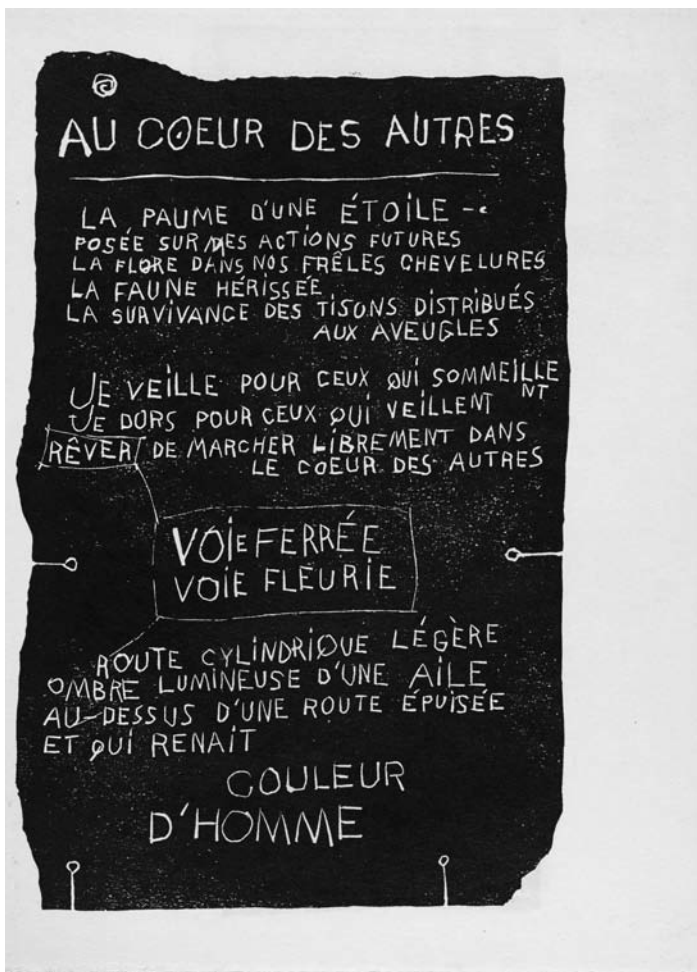 AU COEUR DES AUTRES
LA PAUME D'UNE ÉTOILE -
POSÉE SUR MES ACTIONS FUTURES
LA FLORE DANS NOS FRÊLES CHEVELURES
LA FAUNE HÉRISSÉE
LA SURVIVANCE DES TISONS DISTRIBUÉS
AUX AVEUGLES
JE VEILLE POUR CEUX QUI SOMMEILLE
NT
JE DORS POUR CEUX QUI VEILLENT
RÊVER DE MARCHER LIBREMENT DANS
LE COEUR DES AUTRES
VOIE FERRÉE
VOIE FLEURIE
ROUTE CYLINDRIQUE LÉGÈRE
OMBRE LUMINEUSE D'UNE AILE
AU-DESSUS D'UNE ROUTE ÉPUISÉE
ET QUI RENAIT
COULEUR
D'HOMME